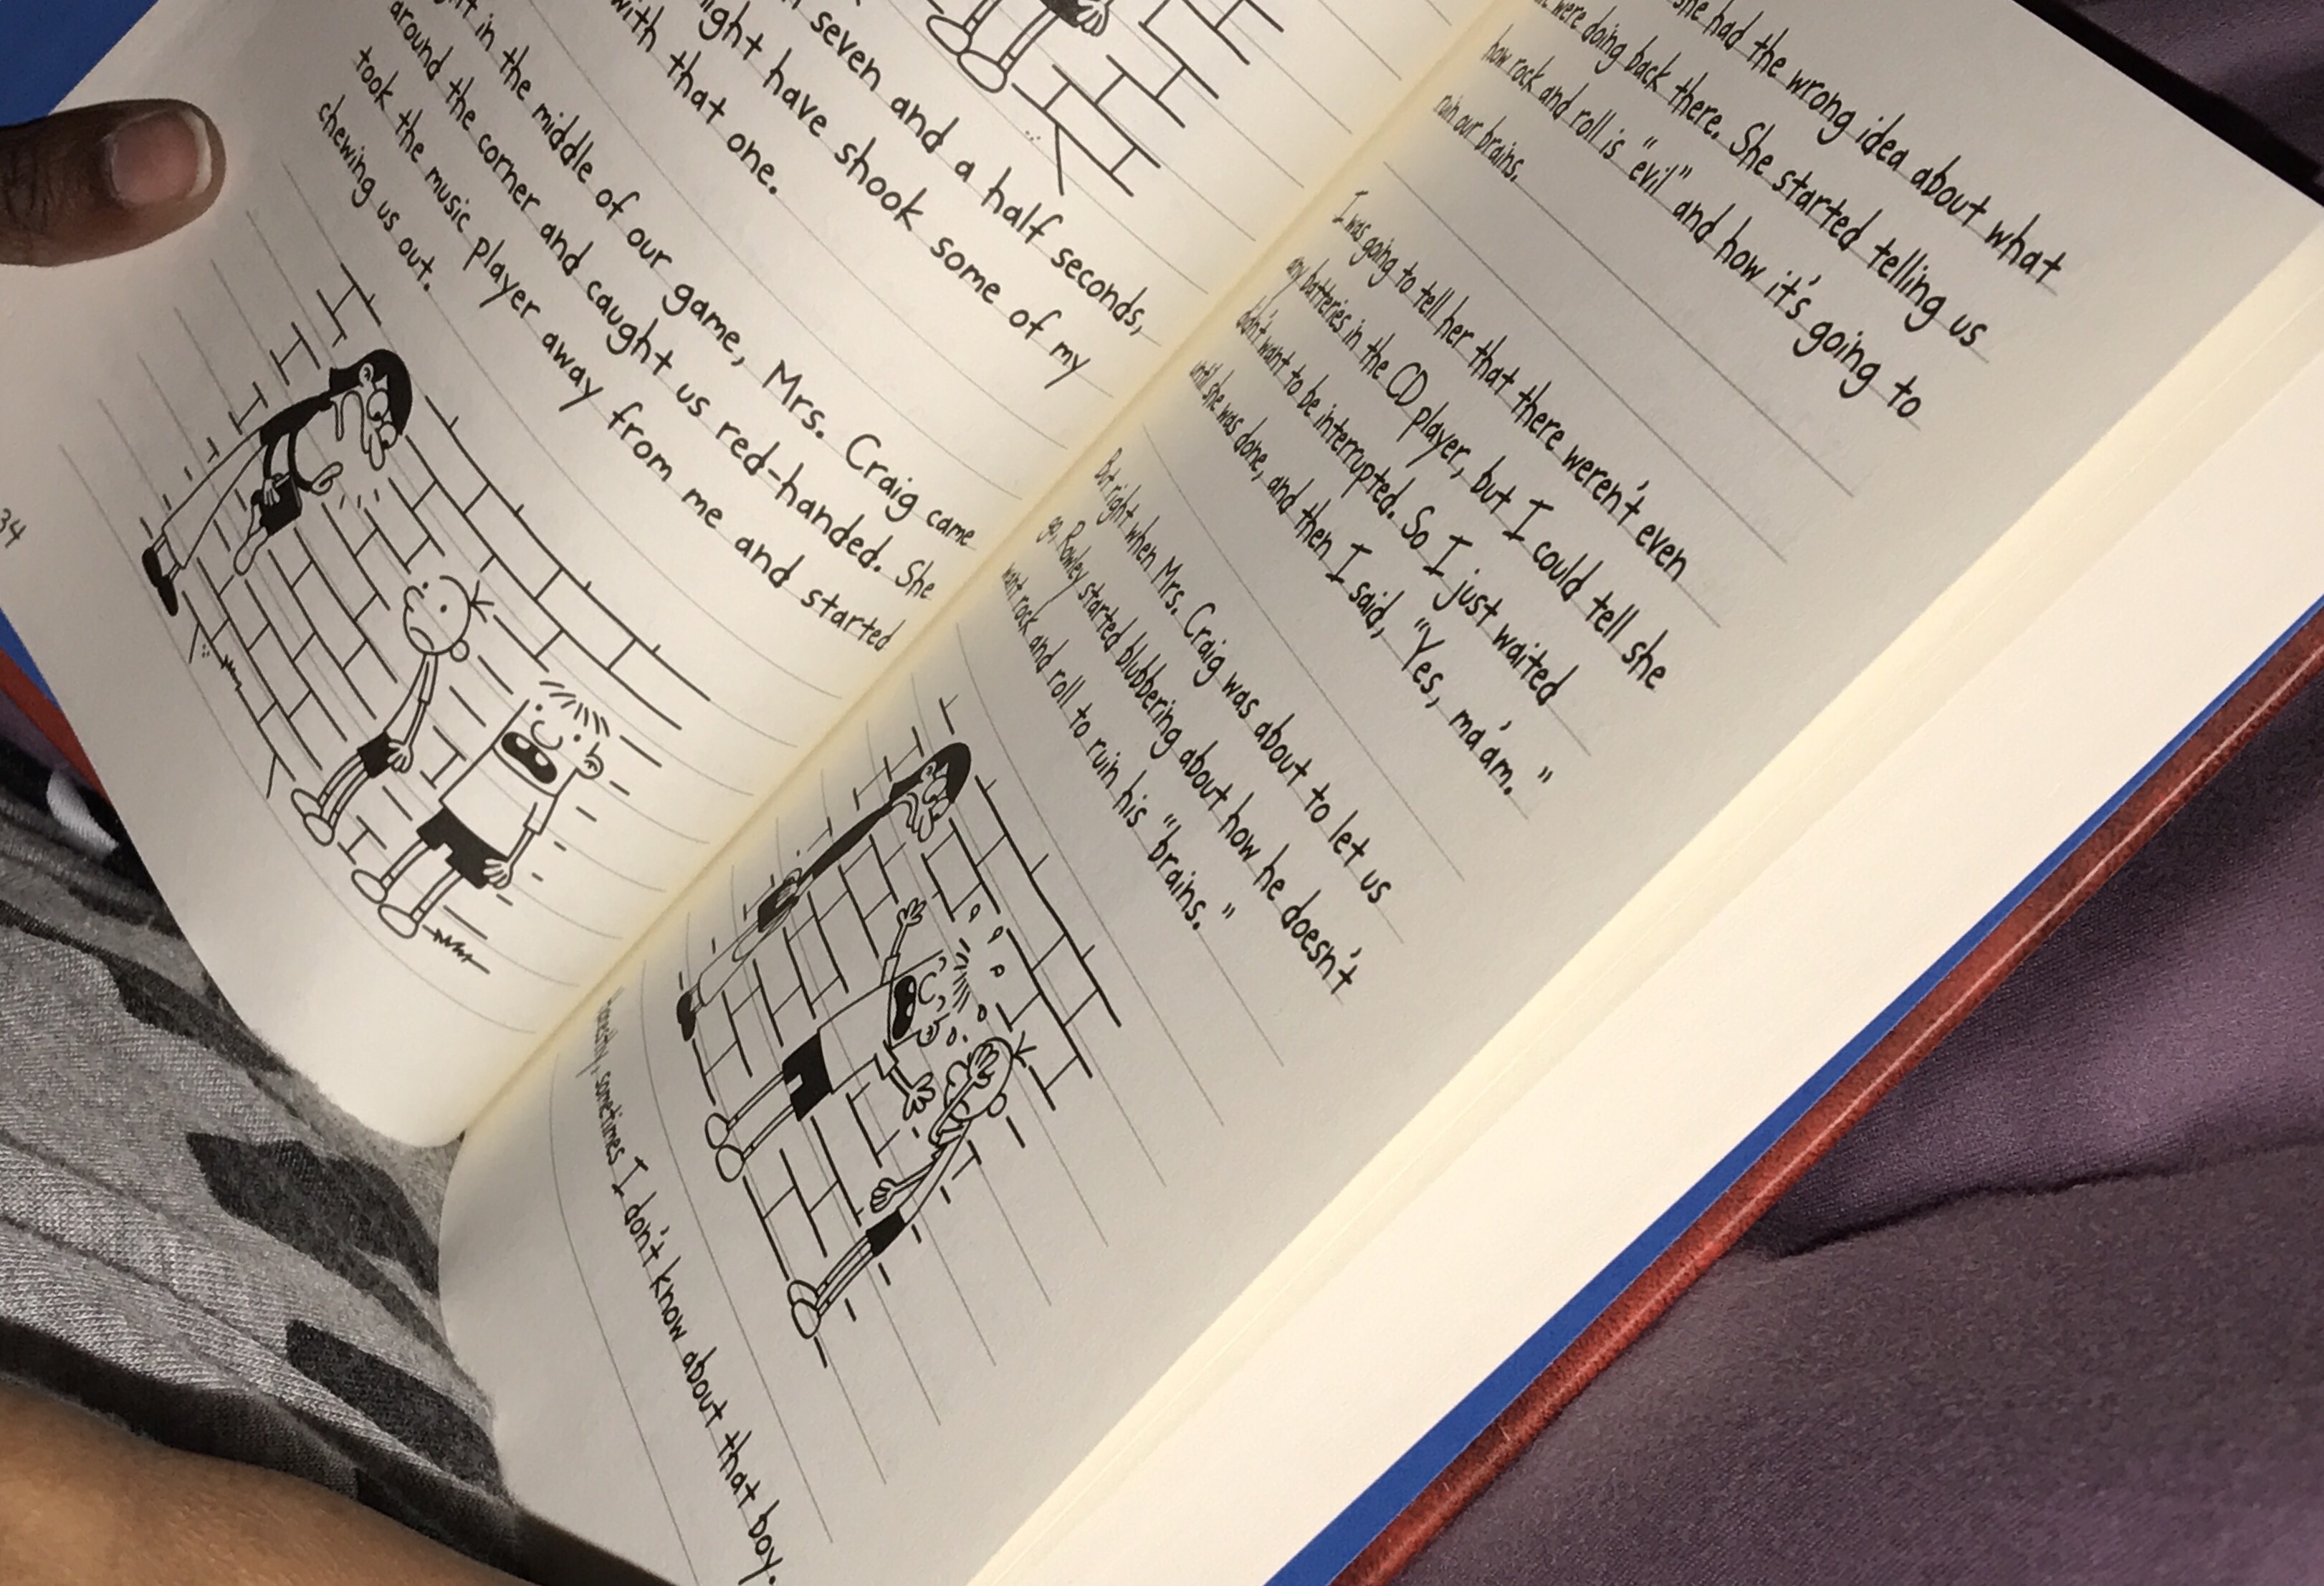 n seven and a half seconds,
ight have shook some of my
with that one.
in the middle of our game, Mrs. Craig came
around the corner and caught us red-handed. She
took the music player away from me and started
chewing us out.
34
she had the wrong idea about what
were doing back there. She started telling us
how rock and roll is "evil" and how it's going to
ruin our brains.
I was going to tell her that there weren't even
any batteries in the CD player, but I could tell she
didn't want to be interrupted. So I just waited
until she was done, and then I said, "Yes, ma'am."
But right when Mrs. Craig was about to let us
go, Rowley started blubbering about how he doesn't
want rock and roll to ruin his "brains."
sometimes I don't know about that boy.